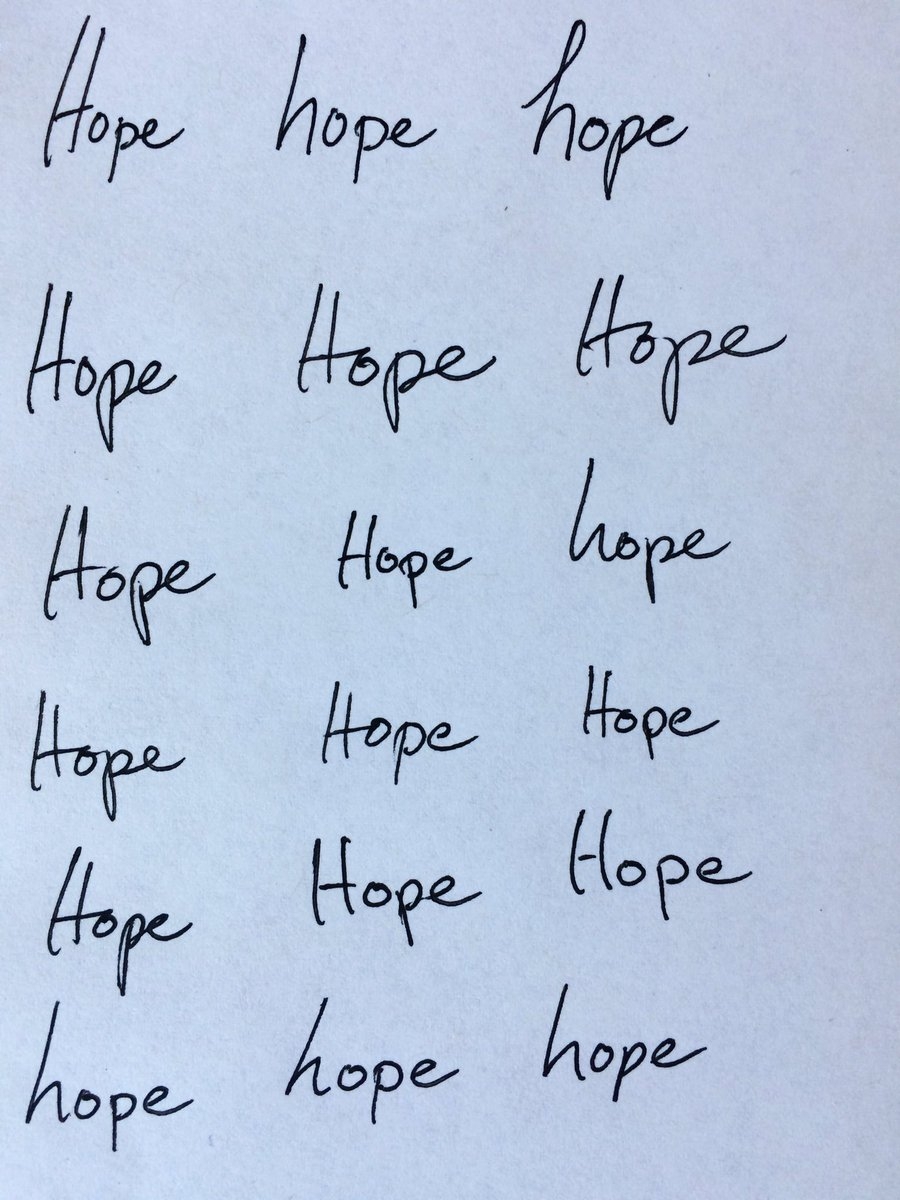 Hope hope hope
Hope Hope Hope
Hope Hope hope
Hope Hope Hope
Hope Hope Hope
hope hope hope